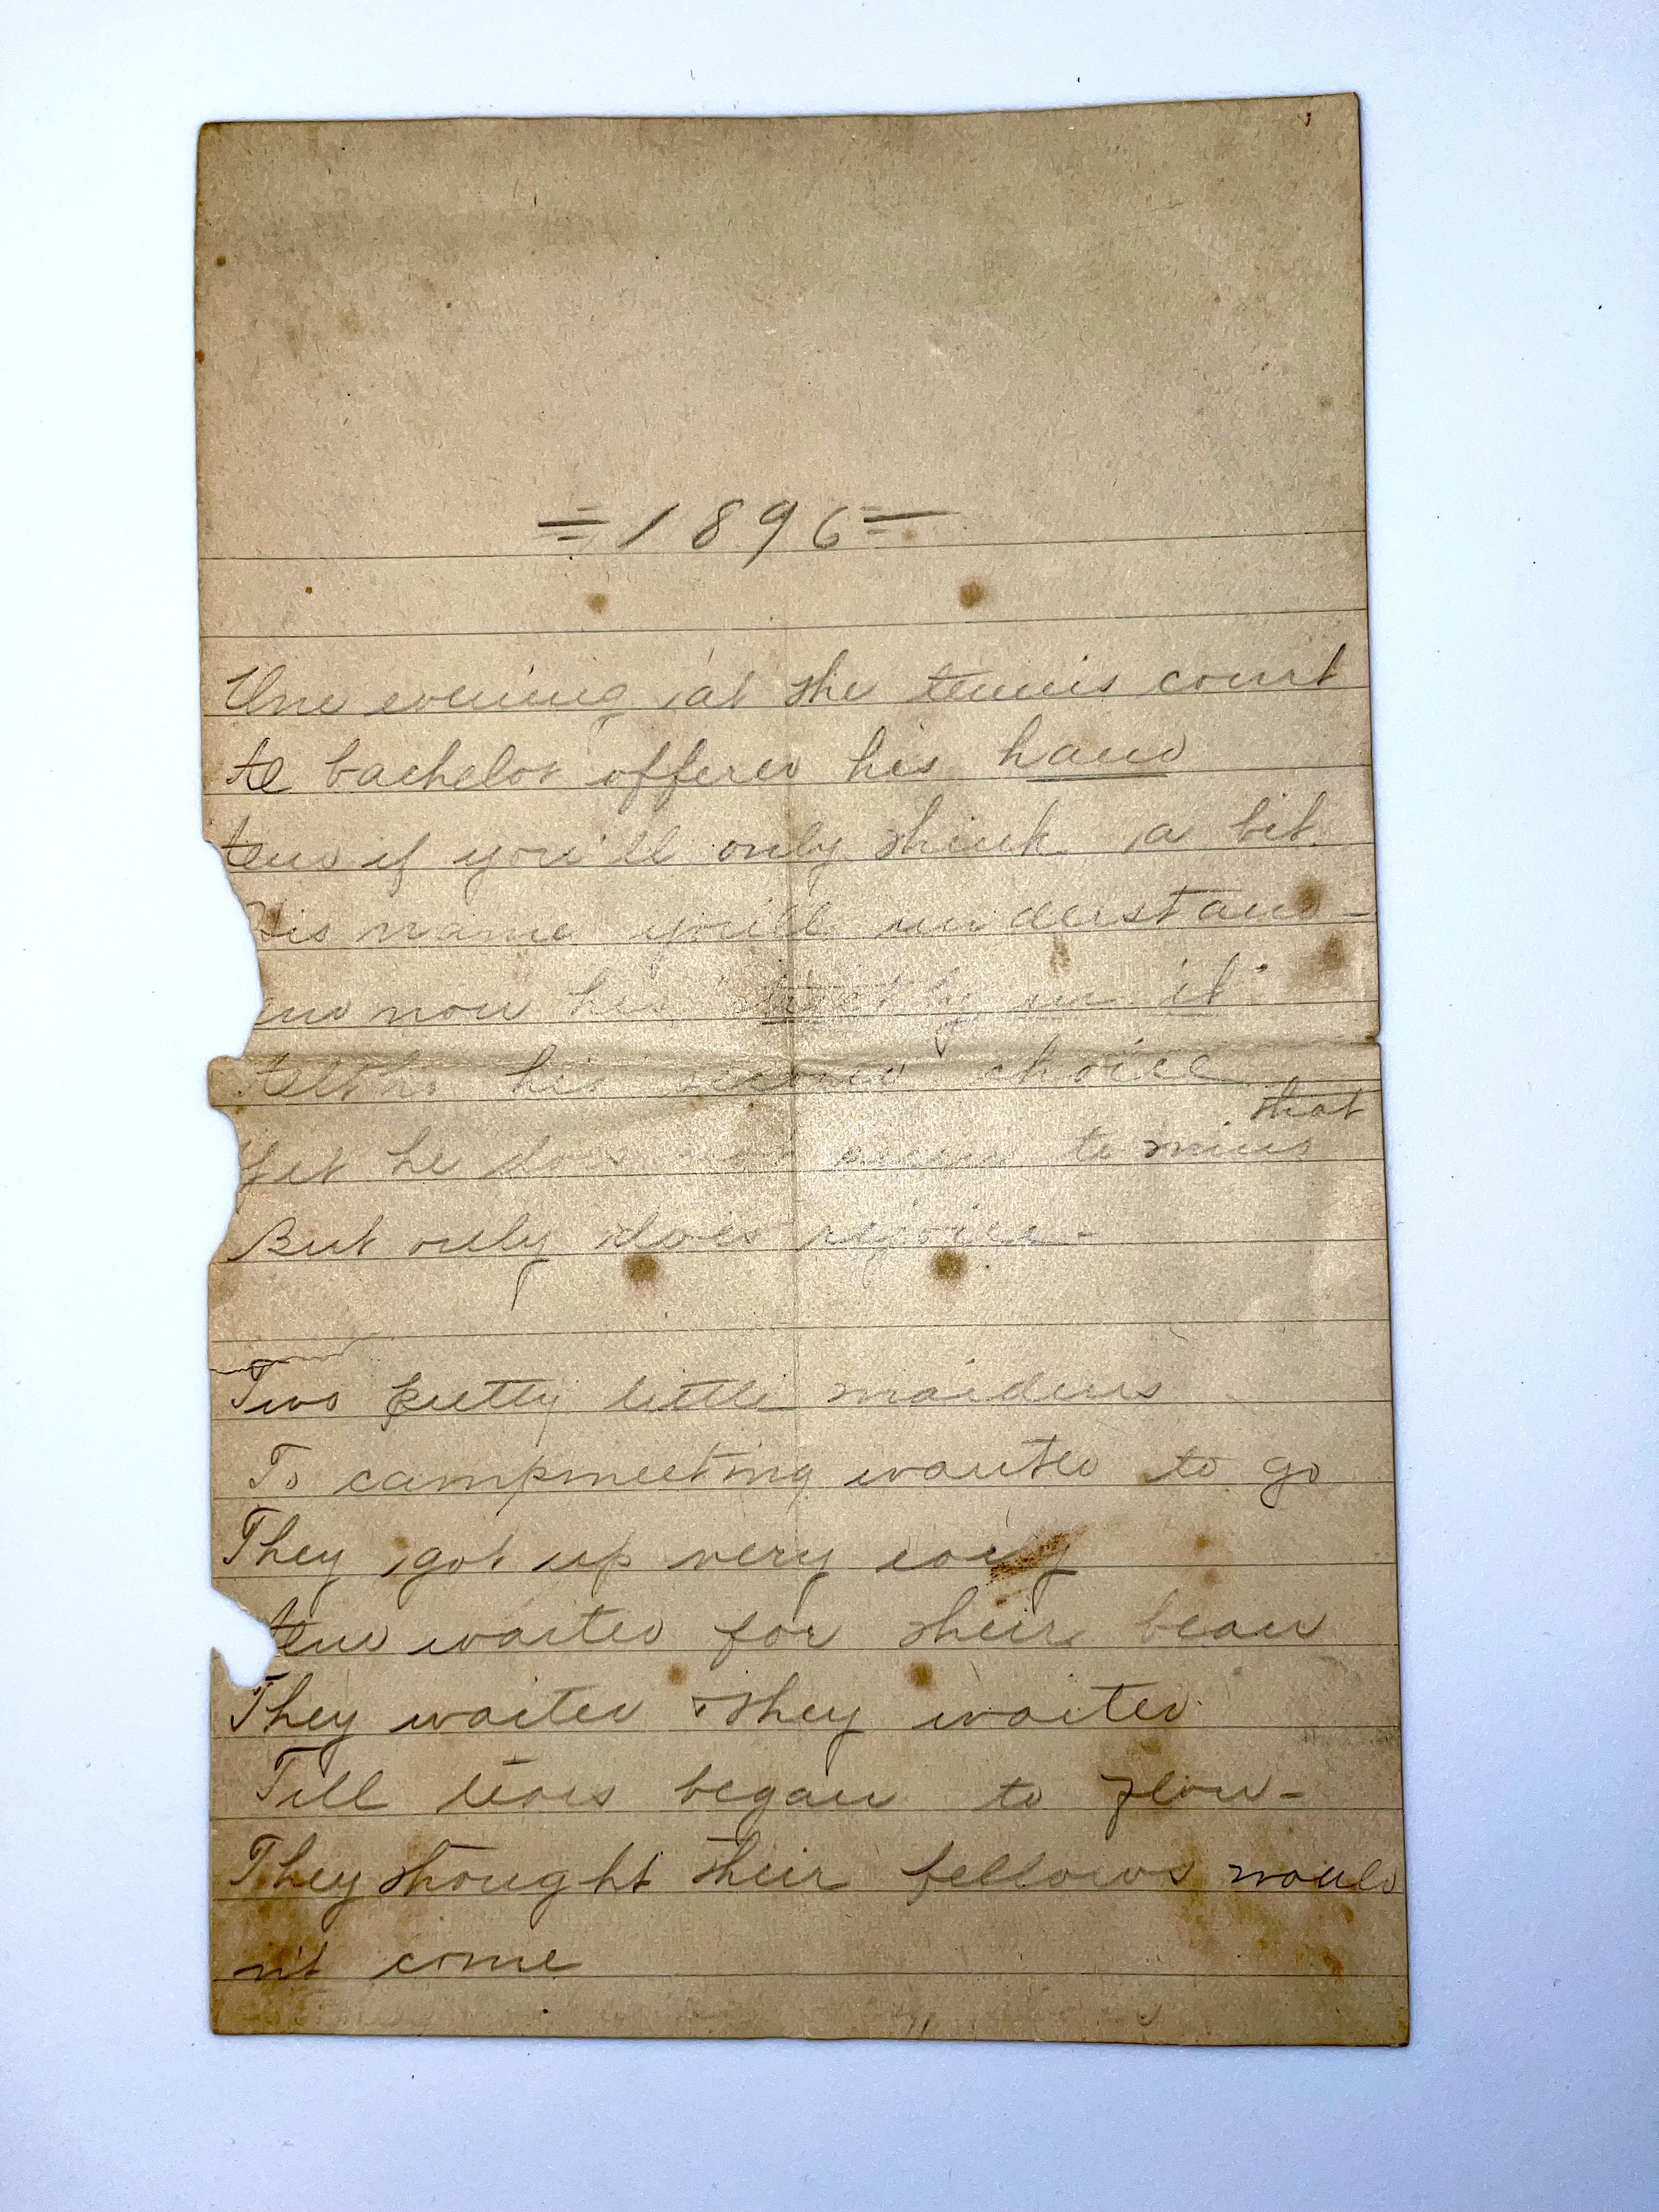 = 1896 =
One evening at the tennis court
A bachelor offered his hand
And if you'll only think a bit
His name you'll understand -
And now he's "strictly in it"
Altho his second choice
that
Yet he does not seem to mind
But only does rejoice -
Two pretty little maidens
To campmeeting wanted to go
They got up very
And waited for their beau
They waited & they waited
Till tears began to flow -
They thought their fellows would
n't come